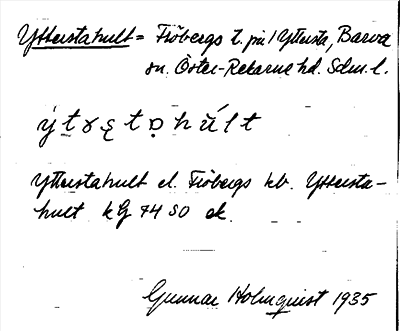 Ytterstahult = Fröbergs t. på 1 Yttersta, Barva
sn. Öster-Rekarne hd. Sdm. l.
Ytterstahult el. Fröbergs kb. Yttersta-
hult kG 74 SO ek.
Gunnar Holmquist 1935